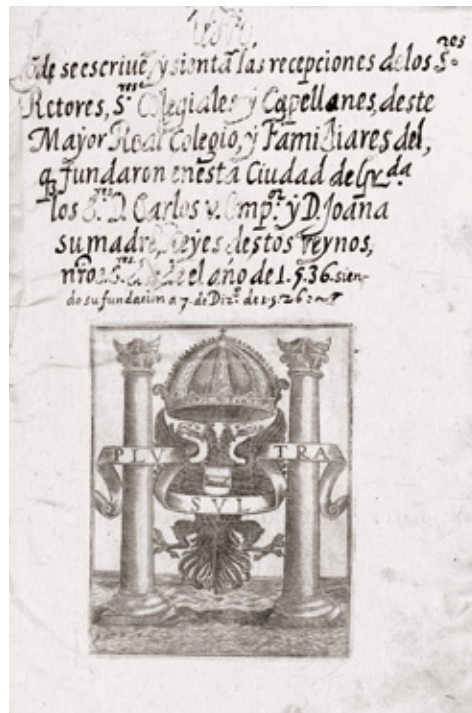 Libro
de se escriue, y sienta las recepciones de los S.res
Retores, S.res Colegiales, y Capellanes, deste
Mayor Real Colegio, y Familiares del,
q fundaron en esta Ciudad de
los S.res D. Carlos v. Emp.or y D. Joana
su madre, Reyes destos reynos,
nros S.res desde el año de 1.5.36. sien-
do su fundacion a 7. de Diz.e de 1526
PLV TRA
SVL